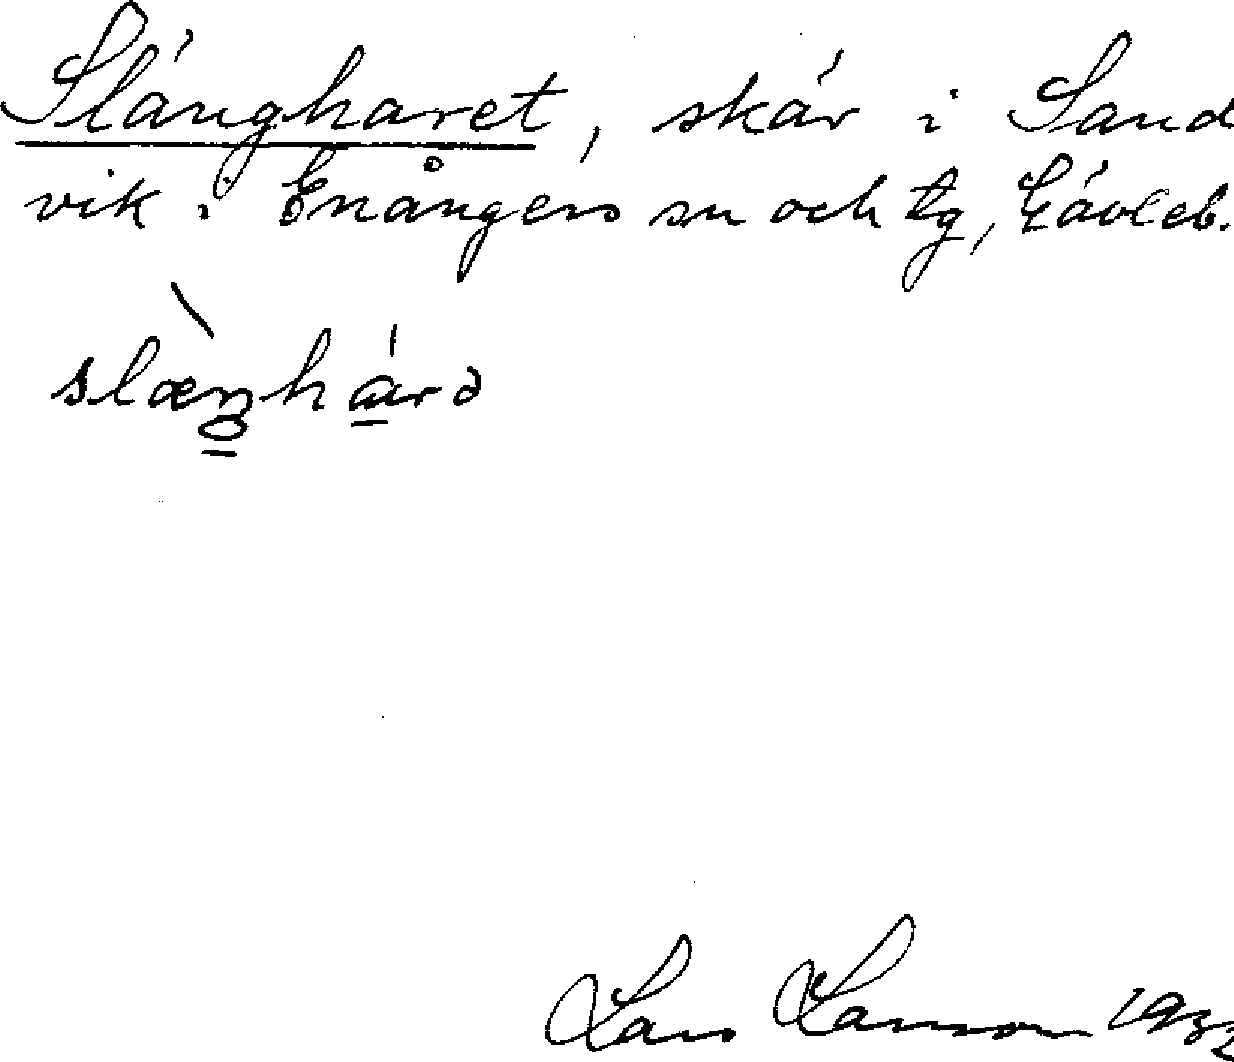 Slängharet, skär i Sand
vik i Enångers sn och tg, Gävleb.
Lars Larsson 1932